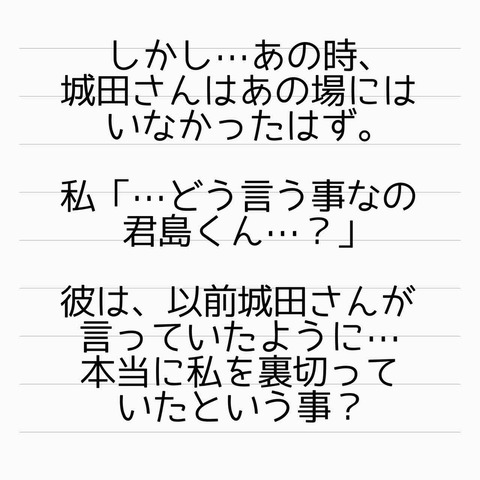 しかし…あの時、
城田さんはあの場には
いなかったはず。
私「…どう言う事なの
君島くん…？」
彼は、以前城田さんが
言っていたように…
本当に私を裏切って
いたという事？